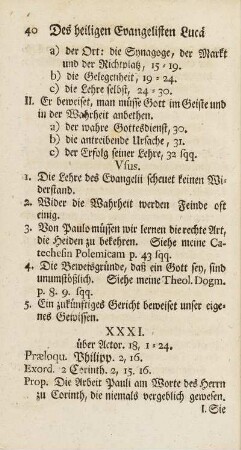 40 Des heiligen Evangelisten Lucä
a) der Ort: die Synagoge, der Markt
und der Richtplatz, 15-19.
b) die Gelegenheit, 19-24.
c) die Lehre selbst, 24-30.
II. Er beweiset, man müsse Gott im Geiste und
in der Wahrheit anbethen.
a) der wahre Gottesdienst, 30.
b) die antreibende Ursache, 31.
c) der Erfolg seiner Lehre, 32 sqq.
Vsus.
1. Die Lehre des Evangelii scheuet keinen Wi-
derstand.
2. Wider die Wahrheit werden Feinde oft
einig.
3. Von Paulo müssen wir lernen die rechte Art,
die Heiden zu bekehren. Siehe meine Ca-
techesin Polemicam p. 43 sqq.
4. Die Beweisgründe, daß ein Gott sey, sind
unumstößlich. Siehe meine Theol. Dogm.
p. 8. 9. sqq.
5. Ein zukünftiges Gericht beweiset unser eige-
nes Gewissen.
XXXI.
über Actor. 18, 1-24.
Præloqu. Philipp. 2, 16.
Exord. 2 Corinth. 2, 15. 16.
Prop. Die Arbeit Pauli am Worte des Herrn
zu Corinth, die niemals vergeblich gewesen.
I. Sie